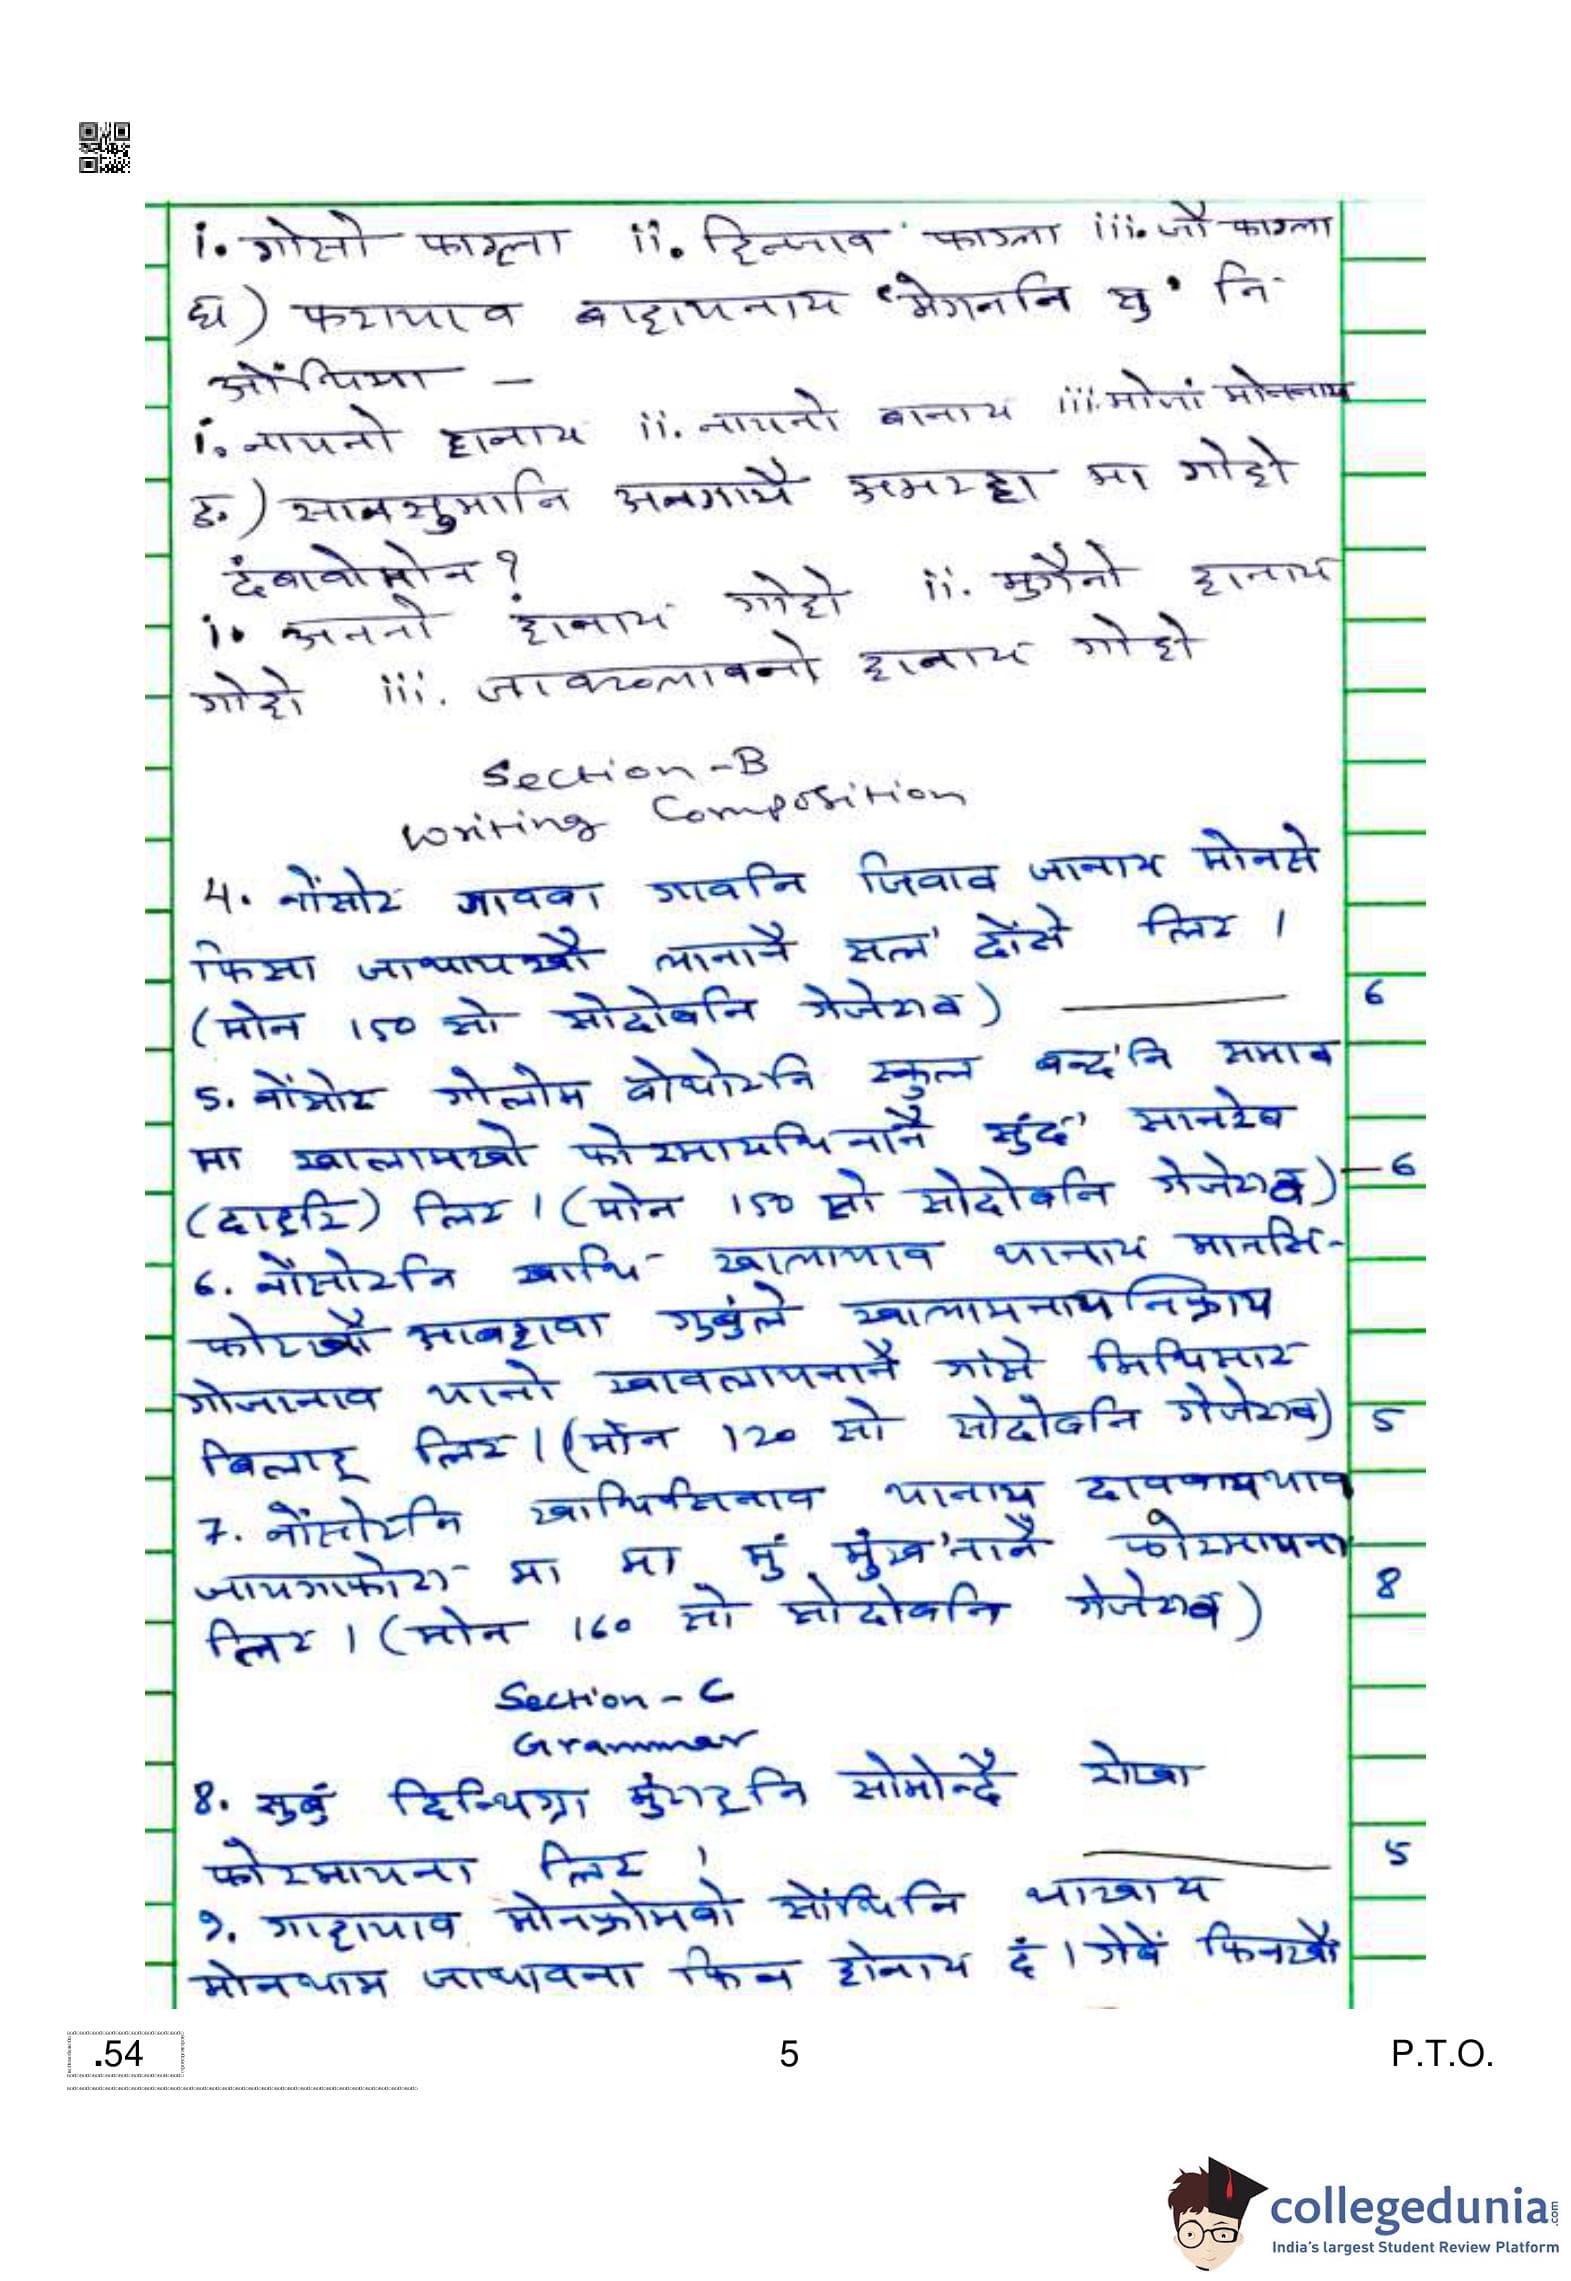 i. गोसो फाग्ला ii. हिन्जाव फाग्ला iii. जौ फाग्ला
घ) फरायाव बाहायनाय 'मेगननि मु' नि
ओंथिआ —
i. नायनो हानाय ii. नायनो बानाय iii. मोजां मोननाय
ङ) सानसुमानि अनगायै अमरहा मा गोहो
दंबावोमोन?
i. अननो हानाय गोहो ii. मुगैनो हानाय
गोहो iii. जाबख्लाबनो हानाय गोहो
Section-B
Writing Composition
4. नोंसोर गावबा गावनि जिवाव जानाय मोनसे
फिसा जाथायखौ लानानै सल' दोंसे लिर ।
(मोन 150 सो सोदोबनि गेजेराव) 6
5. नोंसोर गोलोम बोथोरनि स्कुल बन्द'नि समाव
मा खालामखो फोरमायथिनानै सुंद' सानरेब
(दाहरि) लिर । (मोन 150 सो सोदोबनि गेजेराव) — 6
6. नोंसोरनि खाथि खालायाव थानाय मानसि-
फोरखौ आबहावा गुबुंले खालामनायनिफ्राय
गोजानाव थानो खावलायनानै गांसे मिथिसार
बिलाइ लिर । (मोन 120 सो सोदोबनि गेजेराव) 5
7. नोंसोरनि खाथिसिनाव थानाय
जायगाफोरा मा मा मुं मुंख'नानै फोरमायना
लिर । (मोन 160 सो सोदोबनि गेजेराव) 8
Section - C
Grammar
8. सुबुं दिन्थिग्रा मुंराइनि सोमोन्दै रोखा
फोरमायना लिर । 5
9. गाहायाव मोनफ्रोमबो सोंथिनि थाखाय
मोनथाम जाथावना फिन होनाय दं । गेबें फिनखौ
.54
5
P.T.O.
collegedunia.com
India's largest Student Review Platform